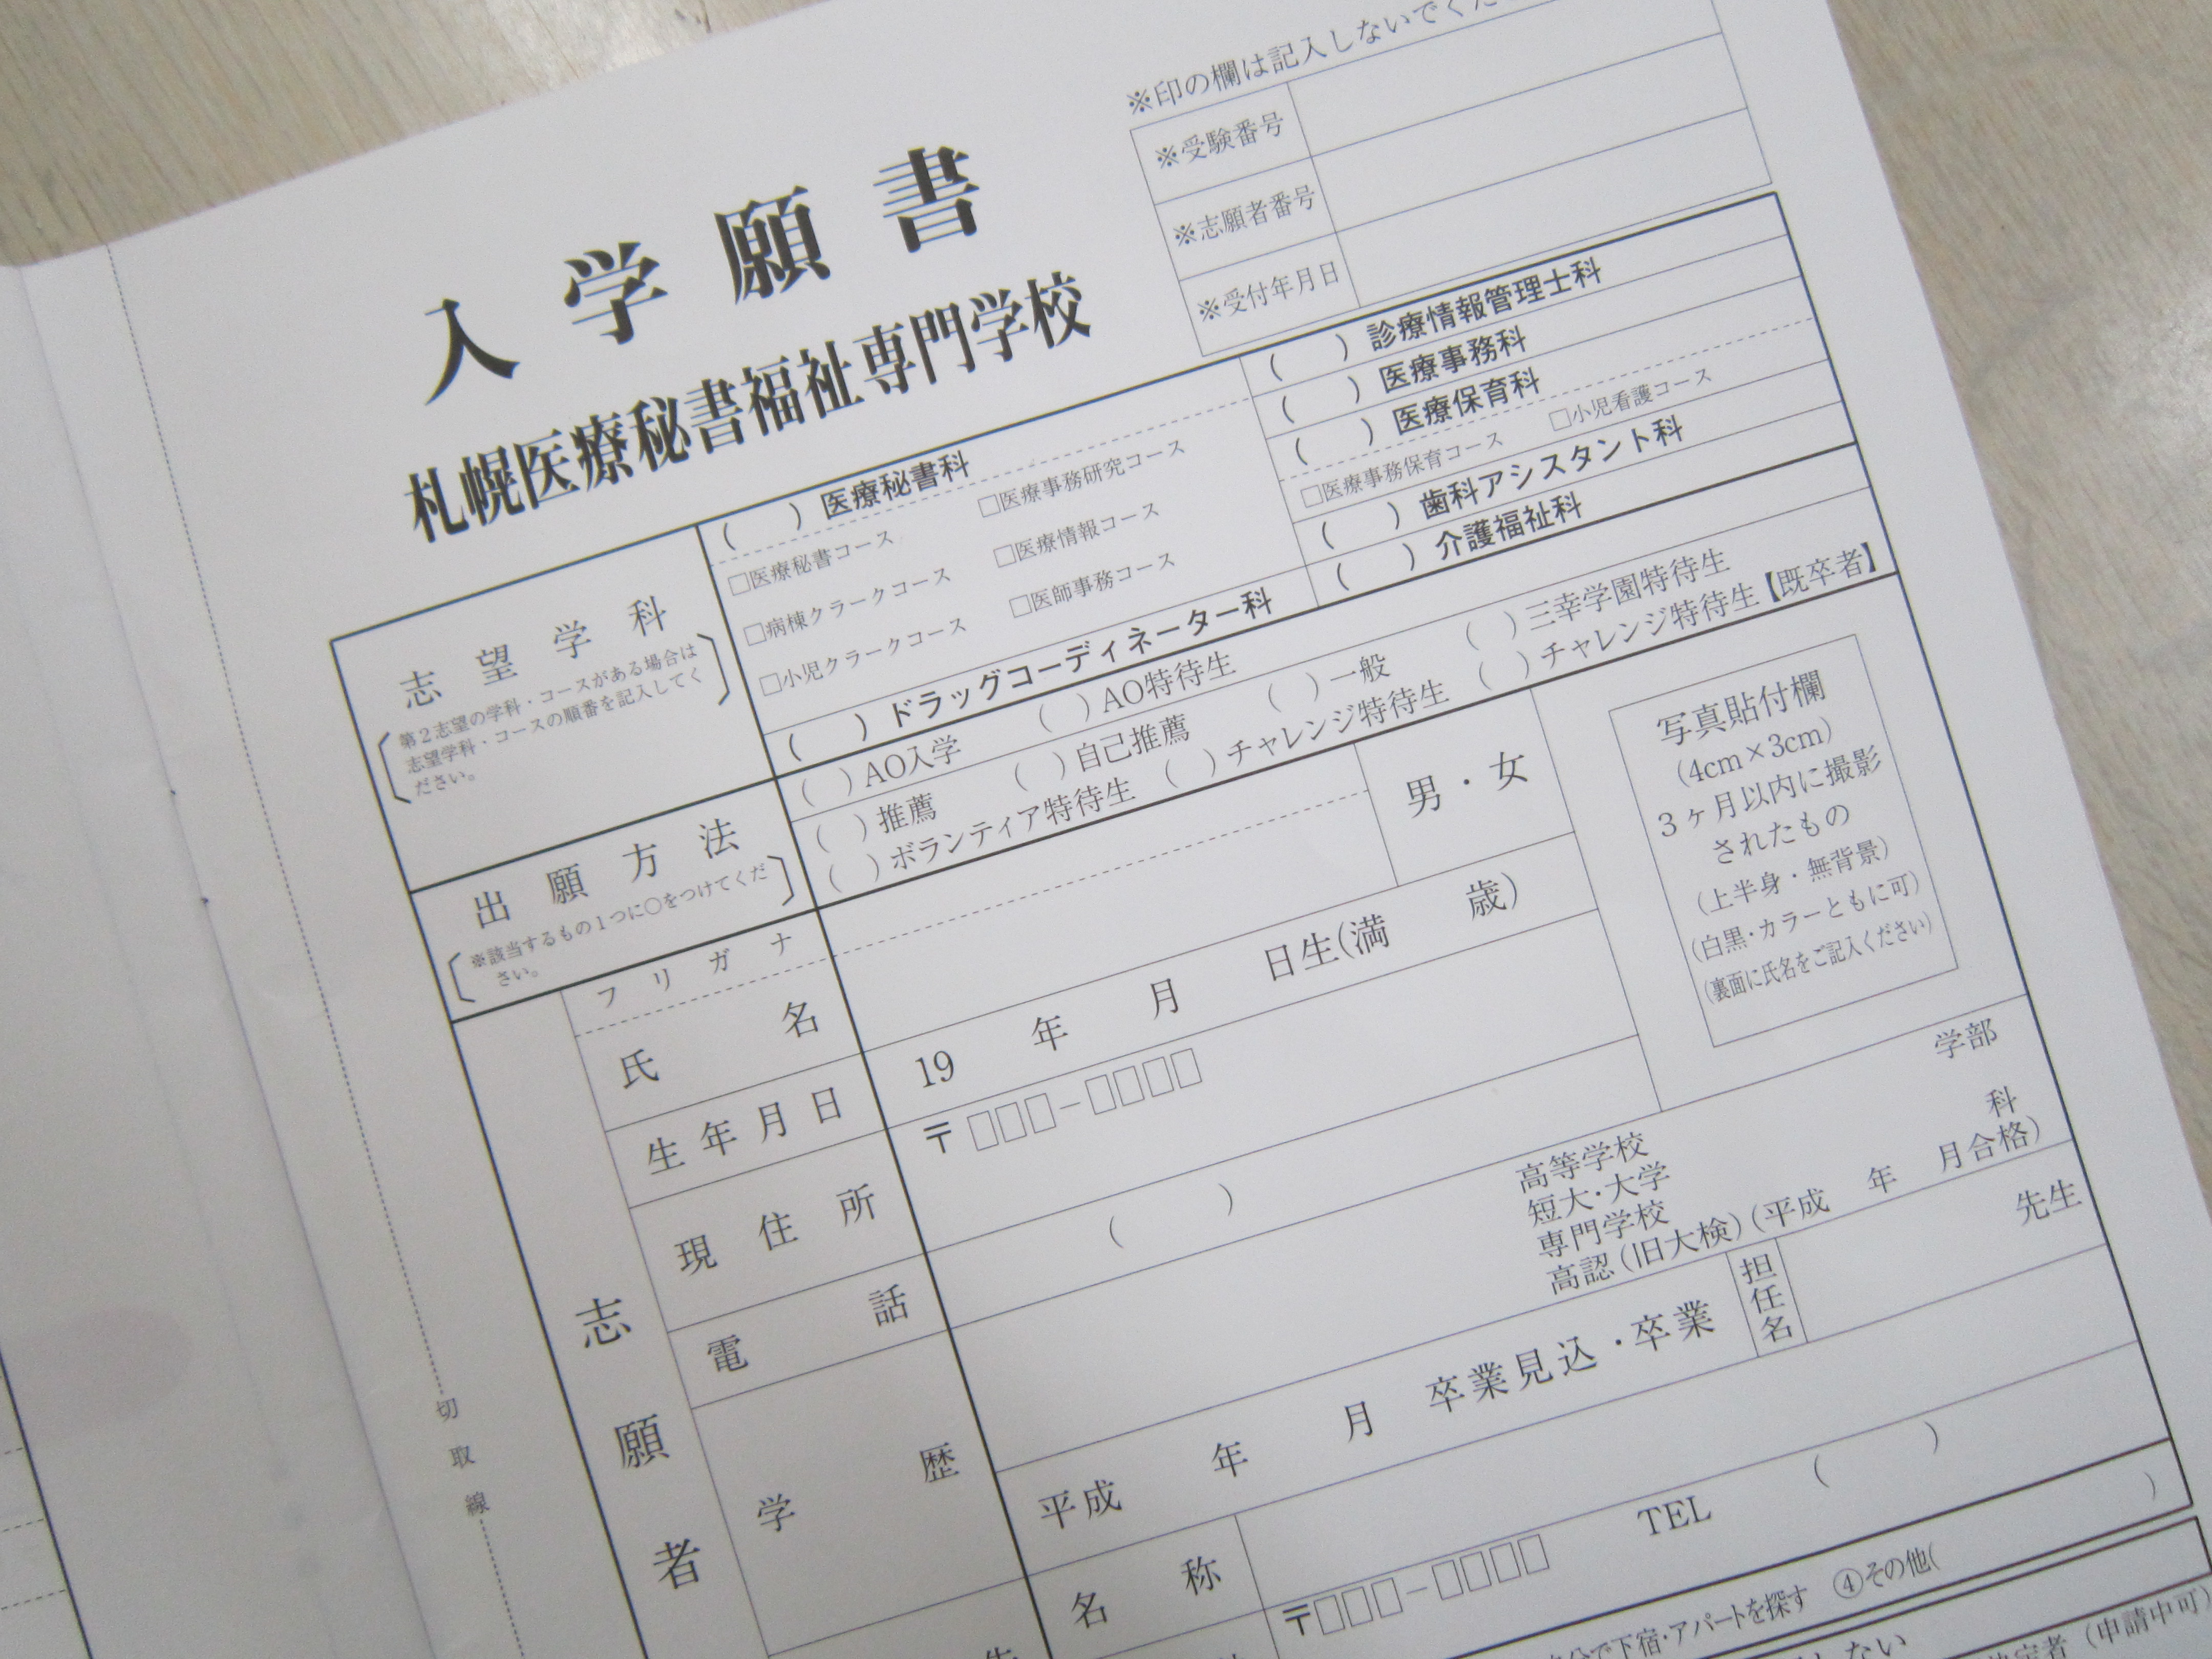 ※印の欄は記入しないでくだ
※受験番号
※志願者番号
※受付年月日
入学願書
札幌医療秘書福祉専門学校
志望学科
第2志望の学科・コースがある場合は
志望学科・コースの順番を記入してく
ださい。
(　) 医療秘書科
□医療秘書コース　□医療事務研究コース
□病棟クラークコース　□医療情報コース
□小児クラークコース　□医師事務コース
(　) ドラッグコーディネーター科
(　) 診療情報管理士科
(　) 医療事務科
(　) 医療保育科
□医療事務保育コース　□小児看護コース
(　) 歯科アシスタント科
(　) 介護福祉科
出願方法
※該当するもの1つに○をつけてくだ
さい。
(　) AO入学　(　) AO特待生　(　) 一般　(　) 三幸学園特待生
(　) 推薦　(　) 自己推薦　(　) チャレンジ特待生　(　) チャレンジ特待生【既卒者】
(　) ボランティア特待生
志願者
フリガナ
氏名
男・女
写真貼付欄
(4cm×3cm)
3ヶ月以内に撮影
されたもの
(上半身・無背景)
(白黒・カラーともに可)
(裏面に氏名をご記入ください)
生年月日
19　年　月　日生(満　歳)
現住所
〒□□□-□□□□
電話
(　)
学歴
高等学校
短大・大学
専門学校
高認(旧大検)(平成　年　月合格)
学部
科
平成　年　月　卒業見込・卒業
担任名
先生
名称
〒□□□-□□□□　TEL　(　)
で下宿・アパートを探す　④その他(　)
ない
定者（申請中可）
切取線